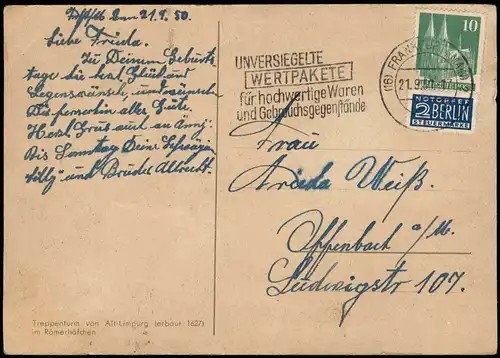 Frkft den 21.9.50.
Liebe Frieda.
Zu Deinem Geburts
tage die herzl. Glück und
Segenswünsche, und
Dir fernerhin alles Gute.
Herzl. Gruß auch an Anny.
Bis Sonntag Deine Schwägerin
"Lilly" und Bruder Albrecht.
UNVERSIEGELTE
WERTPAKETE
für hochwertige Waren
und Gebrauchsgegenstände
(16) FRANKFURT (MAIN)
21.9.50
10
NOTOPFER
2 BERLIN
STEUERMARKE
Frau
Frieda Weiß.
Offenbach a/M.
Ludwigstr 107.
Treppenturm von Alt-Limpurg (erbaut 1627)
im Römerhöfchen